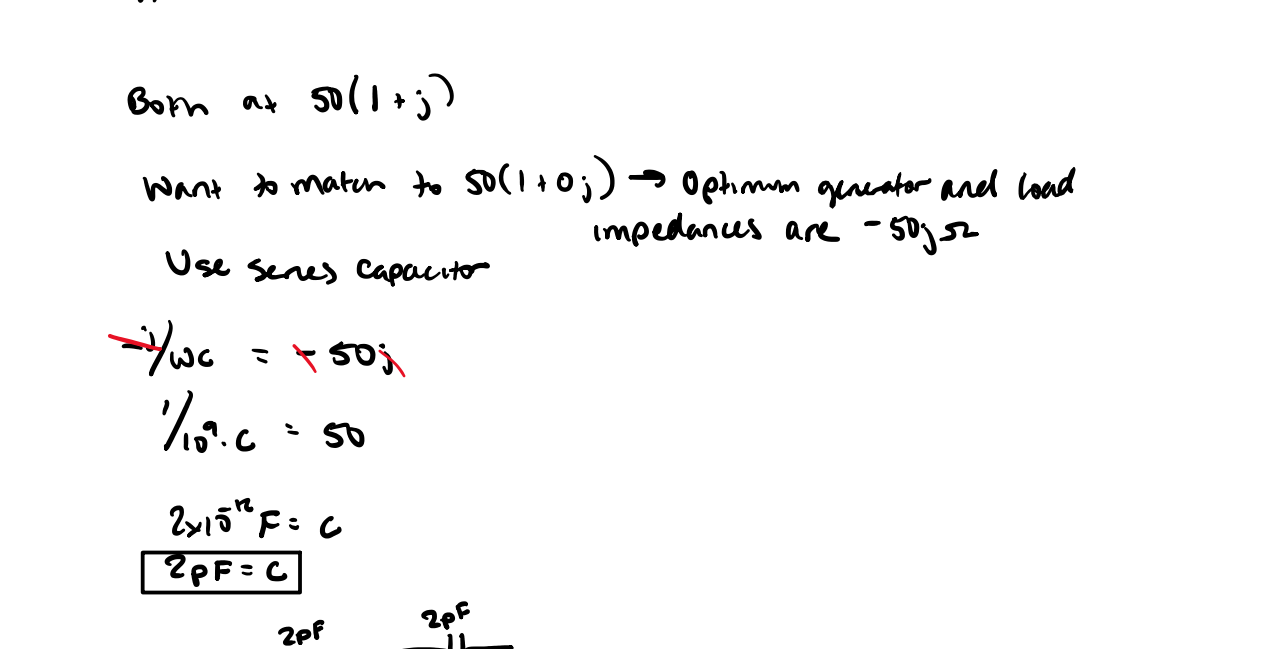 Both at 50(1+j)
Want to match to 50(1+0j) → Optimum generator and load
impedances are -50jΩ
Use series capacitor
-j/wc = -50j
1/10⁹·C = 50
2x10⁻¹²F = C
2pF = C
2pF
2pF